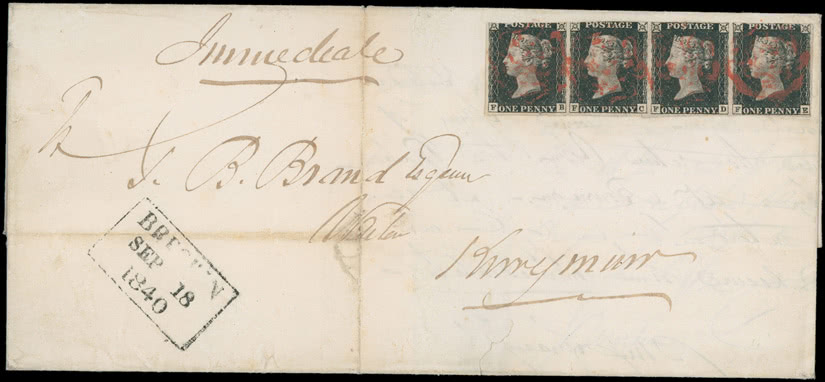 Immediate
POSTAGE POSTAGE POSTAGE POSTAGE
F ONE PENNY B F ONE PENNY C F ONE PENNY D F ONE PENNY E
J. B. Brand Esquire
Writer
Kirrymuir
BRECHIN
SEP 18
1840